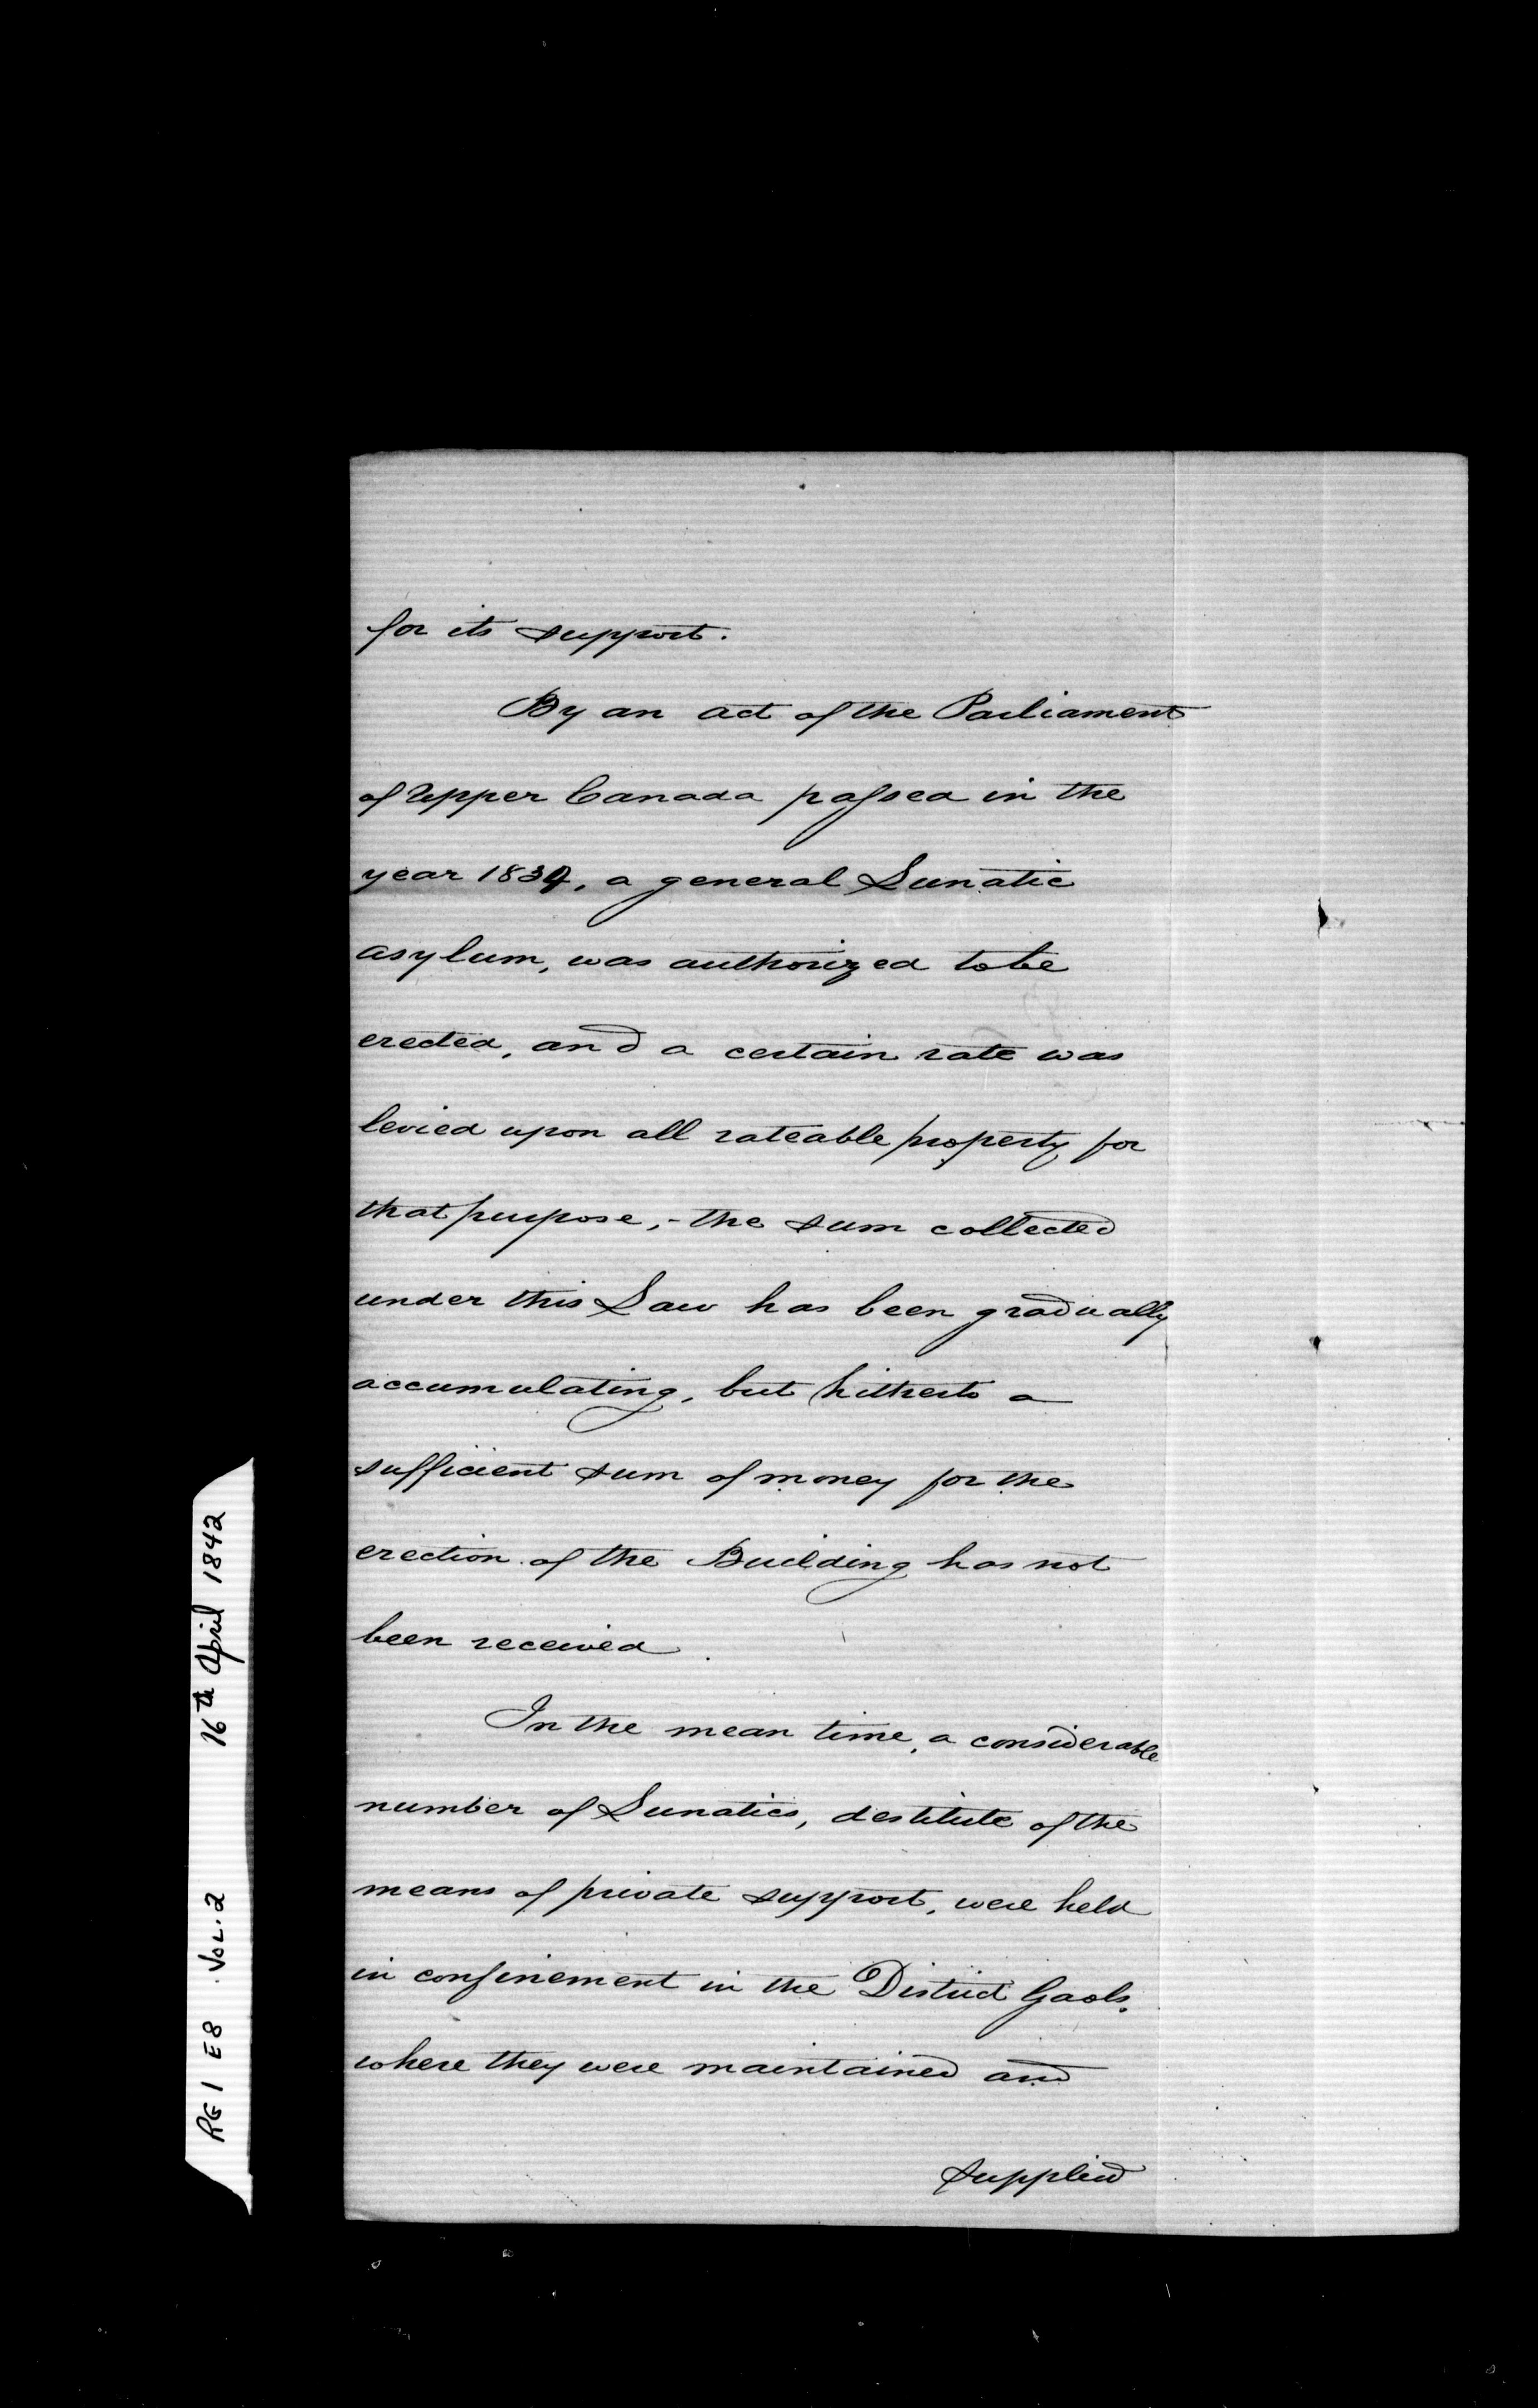 for its support.
By an act of the Parliament
of Upper Canada passed in the
year 1839, a general Lunatic
asylum, was authorized to be
erected, and a certain rate was
levied upon all rateable property for
that purpose, - the sum collected
under this Law has been gradually
accumulating, but hitherto a
sufficient sum of money for the
erection of the Building has not
been received.
In the mean time, a considerable
number of Lunatics, destitute of the
means of private support, were held
in confinement in the District Gaols,
where they were maintained and
supplied
RG 1 E8 Vol. 2 16th April 1842